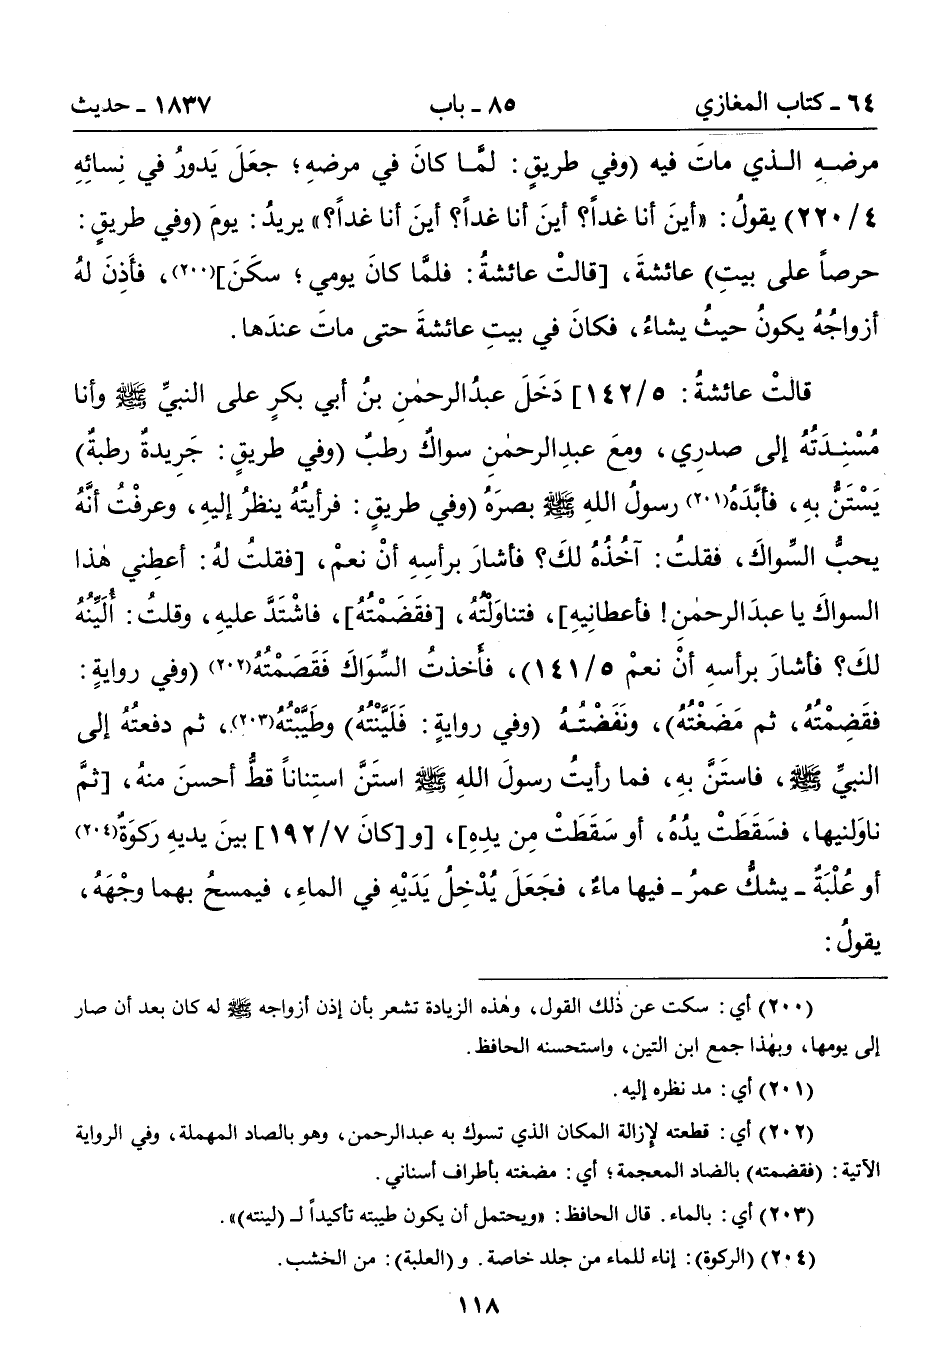 ٦٤ ـ كتاب المغازي ٨٥ ـ باب ١٨٣٧ ـ حديث
مرضهِ الـذي ماتَ فيه (وفي طريقٍ: لمَّـا كانَ في مرضهِ؛ جعَلَ يَدورُ في نِسائِهِ
٢٢٠/٤) يقولُ: «أينَ أنا غداً؟ أينَ أنا غداً؟ أينَ أنا غداً؟» يريدُ: يومَ (وفي طريقٍ:
حرصاً على بيتِ) عائشةَ، [قالتْ عائشةُ: فلمَّا كانَ يومي؛ سكَنَ](٢٠٠)، فأَذِنَ لهُ
أزواجُهُ يكونُ حيثُ يشاءُ، فكانَ في بيتِ عائشةَ حتى ماتَ عندَها.
قالتْ عائشةُ: ١٤٢/٥] دَخَلَ عبدُالرحمٰنِ بنُ أبي بكرٍ على النبيِّ ﷺ وأنا
مُسْنِـدَتُهُ إلى صدري، ومعَ عبدِالرحمٰنِ سواكٌ رطبٌ (وفي طريقٍ: جَريدةٌ رطبةٌ)
يَسْتَنُّ بهِ، فأبَّدَهُ(٢٠١) رسولُ اللهِ ﷺ بصرَهُ (وفي طريقٍ: فرأيتُهُ ينظرُ إليهِ، وعرفْتُ أنَّهُ
يحبُّ السِّواكَ، فقلتُ: آخُذُهُ لكَ؟ فأشارَ برأسِهِ أنْ نعمْ، [فقلتُ لهُ: أعطِني هٰذا
السواكَ يا عبدَالرحمٰنِ! فأعطانِيهِ]، فتناوَلْتُهُ، [فقَضَمْتُهُ]، فاشْتَدَّ عليهِ، وقلتُ: أُلَيِّنُهُ
لكَ؟ فأشارَ برأسهِ أنْ نعمْ ١٤١/٥)، فأَخذتُ السِّوَاكَ فَقَصَمْتُهُ(٢٠٢) (وفي روايةٍ:
فقَضِمْتُهُ، ثم مَضَغْتُهُ)، ونَفَضْتُـهُ (وفي روايةٍ: فَلَيَّنْتُهُ) وطَيَّبْتُهُ(٢٠٣)، ثم دفعتُهُ إلى
النبيِّ ﷺ، فاستَنَّ بهِ، فما رأيتُ رسولَ اللهِ ﷺ استَنَّ استِناناً قطُّ أحسنَ منهُ، [ثمَّ
ناوَلنيها، فسَقَطَتْ يدُهُ، أو سَقَطَتْ مِن يدِهِ]، [و[كانَ ١٩٢/٧] بينَ يديهِ رَكوَةٌ(٢٠٤)
أو عُلْبَةٌ ـ يشكُّ عمرُ ـ فيها ماءٌ، فجَعَلَ يُدْخِلُ يَدَيْهِ في الماءِ، فيمسحُ بهما وجْهَهُ،
يقولُ:
(٢٠٠) أي: سكت عن ذٰلك القول، وهٰذه الزيادة تشعر بأن إذن أزواجه ﷺ له كان بعد أن صار
إلى يومها، وبهٰذا جمع ابن التين، واستحسنه الحافظ.
(٢٠١) أي: مد نظره إليه.
(٢٠٢) أي: قطعته لإزالة المكان الذي تسوك به عبدالرحمن، وهو بالصاد المهملة، وفي الرواية
الآتية: (فقضمته) بالضاد المعجمة؛ أي: مضغته بأطراف أسناني.
(٢٠٣) أي: بالماء. قال الحافظ: «ويحتمل أن يكون طيبته تأكيداً لـ (لينته)».
(٢٠٤) (الركوة): إناء للماء من جلد خاصة. و(العلبة): من الخشب.
١١٨